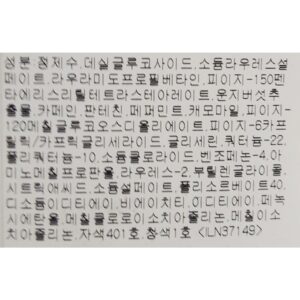 성분 정제수.데실글루코사이드.소듐라우레스설
페이트.라우라미도프로필베타인.피이지-150펜
타에리스리틸테트라스테아레이트.운지버섯추
출물.카페인.판테친.페퍼민트.캐모마일.피이지-
120메칠글루코오스디올리에이트.피이지-6카프
릴릭/카프릭글리세라이드.글리세린.쿼터늄-22.
폴리쿼터늄-10.소듐클로라이드.벤조페논-4.아
미노메칠프로판올.라우레스-2.부틸렌글라이콜.
시트릭애씨드.소듐설페이트.폴리소르베이트40.
디소듐이디티에이.비에이치티.이디티에이.페녹
시에탄올.메칠클로로이소치아졸리논.메칠이소
치아졸리논.자색401호.청색1호 <ILN37149>